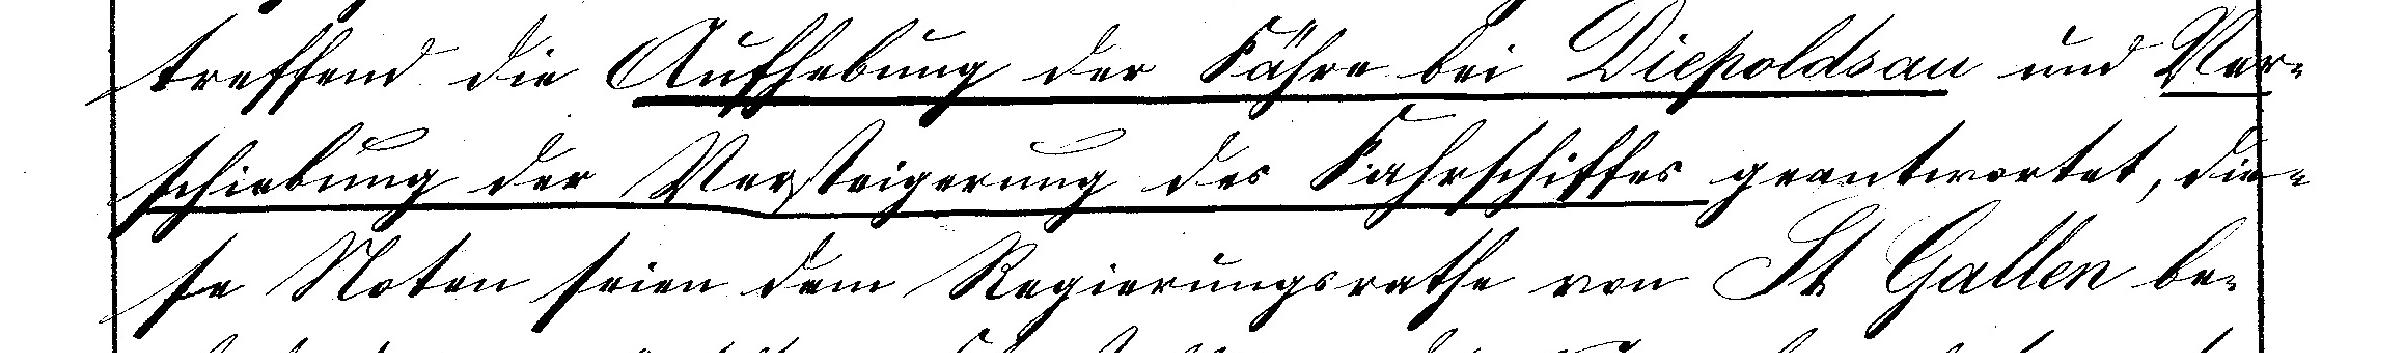 treffend die Aufhebung der Fähre bei Diepoldsau und Ver-
schiebung der Versteigerung des Fahrschiffes geantwortet, die-
se Noten seien dem Regierungsrathe von St Gallen be-